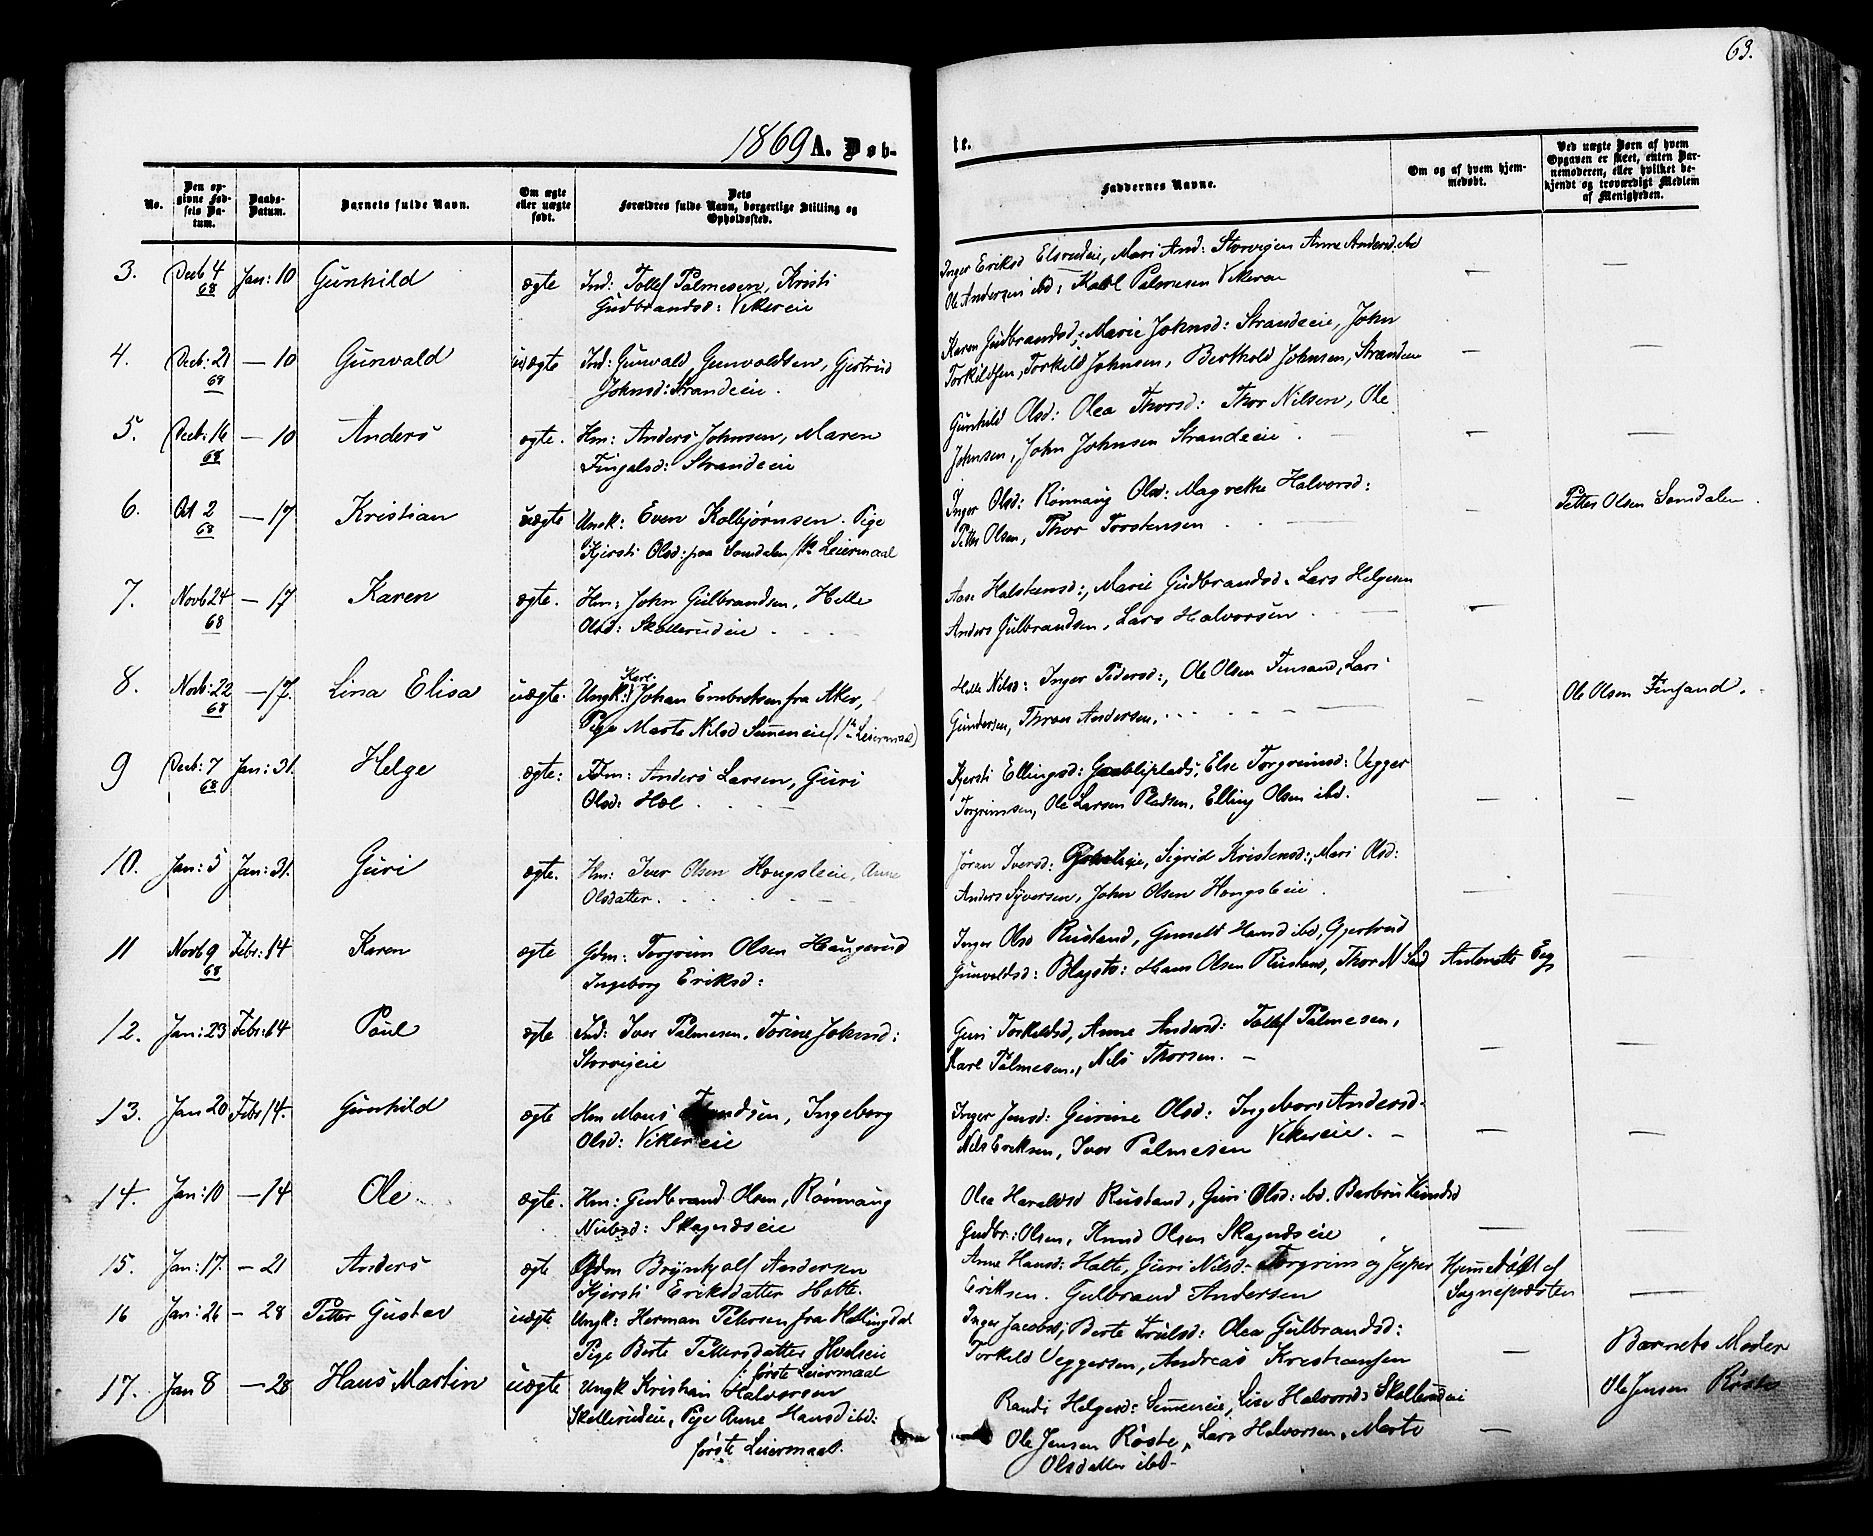 63.
1869 A. Døb-
te.
No.
Den op-
givne Fød-
sels Da-
tum.
Daabs-
Datum.
Barnets fulde Navn.
Om ægte
eller uægte
født.
Dets
Forældres fulde Navn, borgerlige Stilling og
Opholdssted.
Faddernes Navne.
Om og af hvem hjem-
medøbt.
Ved uægte Børn af hvem
Opgaven er skeet, enten Bar-
nemoderen, eller hvilket be-
kjendt og troværdigt Medlem
af Menigheden.
3. Decb 4 68 Jan: 10 Gunhild ægte Ind: Tollef Palmesen, Kristi
Gudbrandsd: Vikereie
Inger Eriksd Elsrudeie, Mari And: Storvejen Anne Andersd ibd
Ole Andersen ibd: Karl Palmesen Vikeren — —
4. Decb: 21 68 — 10 Gunvald uægte Ind: Gunvald Gunvaldsen, Gjertrud
Johnsd: Strandeie.
Karen Gudbrandsd, Marie Johnsd: Strandeie, John
Torkildsen, Torkild Johnsen, Berthold Johnsen, Strandeie — —
5. Decb: 16 68 — 10 Anders ægte. Hm: Anders Johnsen, Maren
Fingalsd: Strandeie
Gunhild Olsd: Olea Thorsd: Thor Nilsen, Ole
Johnsen, John Johnsen Strandeie — —
6. Oct 2 68 — 17 Kristian uægte Ungk: Even Kolbjørnsen. Pige
Kjersti Olsd: paa Somdalen /1ste Leiermaal
Inger Olsd: Rønnaug Olsd: Magrethe Halvorsd:
Petter Olsen, Thor Torstensen — Petter Olsen Somdalen.
7. Novb 24 68 — 17 Karen ægte. Hm: John Gulbrandsen, Helle
Olsd: Skollerudeie
Aase Halstensd:, Marie Gudbrandsd. Lars Helgesen
Anders Gulbrandsen, Lars Halvorsen —
8. Novb: 22 68 — 17. Lina Elisa uægte. Ungk: Karl Johan Embretsen fra Aker,
Pige Marte Nilsd Semmeneie (1ste Leiermaal)
Helle Nilsd: Inger Pedersd:, Ole Olsen Finsand, Lars
Gundersen, Thron Andersen. — Ole Olsen Finsand.
9 Decb: 7 68 Jan: 31. Helge ægte: Fdm: Anders Larsen, Guri
Olsd: Hæl
Kjersti Ellingsd: Grøbliplads, Else Torgrimsd: Vegger
Torgrimsen, Ole Larsen Pladsen, Elling Olsen ibd. — —
10. Jan: 5 Jan: 31. Guri ægte. Hm: Iver Olsen Hougsleie, Anne
Olsdatter.
Jøran Iversd: Sigrid Kristensd:, Mari Olsd:
Anders Syversen, John Olsen Hougsleie. — —
11 Novb 9 68 Febr: 14 Karen ægte Gdm: Torgrim Olsen Haugerud
Ingeborg Eriksd:
Inger Olsd Rustand, Gunild Hansd ibd, Gjertrud
Gunvaldsd: Hans Olsen Rustand, Thor N. Antonette —
12. Jan: 23 Febr: 14 Paul ægte Ind: Iver Palmesen. Torine Johnsd:
Storvejeie
Guri Torkildsd, Anne Andersd: Tollef Palmesen,
Karl Palmesen., Nils Thorsen. — — —
13. Jan 20 Febr 14. Gunhild ægte Hm Mons Ingeborg
Olsd: Vikereie
Inger Jensd: Gurine Olsd: Ingebor: Andersd.
Nils Eriksen, Iver Palmesen Vikereie. — — —
14. Jan: 10 — 14 Ole ægte. Hm: Gudbrand Olsen, Rønnaug
Nubsd: Skagnæseie
Olea Haraldsd Rustand, Guri Olsd: ibd. Barbro Knudsd
Gudbr.: Olsen, Knud Olsen Skagnæseie — —
15. Jan: 17. — 21 Anders ægte Gdm Brynhjolf Andersen
Kjersti Eriksdatter Hatte.
Anne Hansd: Hatte, Guri Nilsd: Torgrim og Jesper
Eriksen. Gulbrand Andersen Hjemmedøbt af
Sognepræsten —
16 Jan: 26 — 28 Petter Gustav uægte Ungk: Herman Petersen fra Hallingdal
Pige Berte Pettersdatter Hvalseie
/: første Leiermaal
Inger Jacobsd, Berte Trulsd: Olea Gulbrandsd:
Torkild Veggersen, Andreas Kristiansen — Barnets Moder
17. Jan 8 — 28 Hans Martin uægte Ungk Kristian Halvorsen
Skollerudeie, Pige Anne Hansd ibd:
første Leiermaal.
Randi Helgesd: Semmeneie, Lise Halvorsd: Skollerudeie
Ole Jensen Røste, Lars Halvorsen, Marte
Olsdatter ibd. — Ole Jensen Røste